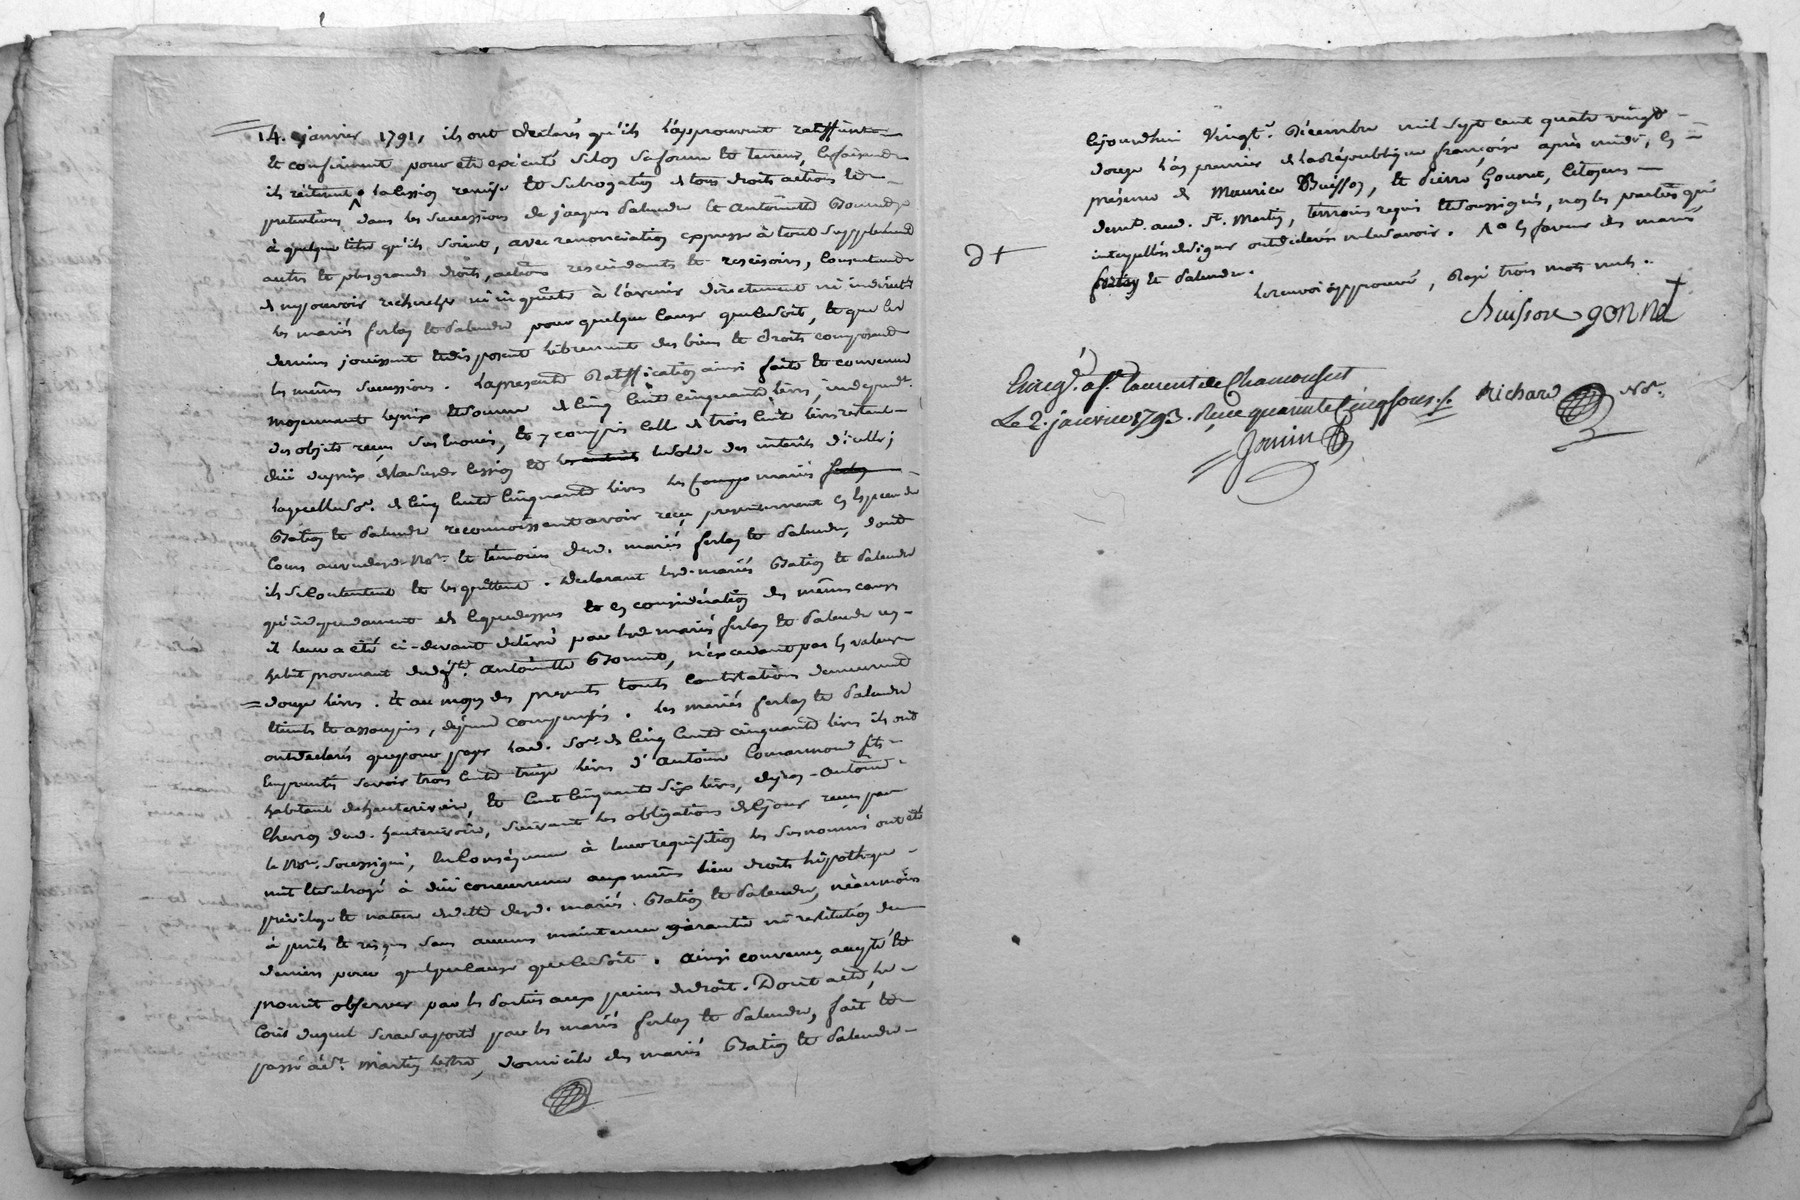 14. janvier 1791, ils ont declarés qu'ils l'approuvent ratiffient
et confirment pour etre exécuté selon sa forme et teneur, ce faisant
ils réiterent la cession remise et subrogation de tous droits actions et
pretentions dans les successions de jacques Palandre et Antoinette
à quelque titre qu'ils soient, avec renonciation expresse à tout supplément
autres et plus grands droits, actions rescindants et rescisoires, consentant
de ne pouvoir rechercher ni inquieter à l'avenir directement ni indirect.t
les mariés ferlay et Palandre pour quelque cause que ce soit, et que ces
derniers jouissent et disposent librement des biens et droits composant
les mêmes successions. La presente Ratiffication ainsi faite et convenue
moyennant le prix et somme de cinq cent cinquante livres, independ.t
des objets reçus sus enoncés, et y compris celle de trois cent livres restant
düe du prix de la susd. cession et les interets le solde des interets d'icelle;
laquelle so.e de cinq cent cinquante livres les mariés ferlay
et Palandre reconnoissent avoir reçu presentement en especes de
cours au vu dud. No.re et témoins desd. mariés ferlay et Palandre, dont
ils se contentent et les quittent. Declarant lesd. mariés et Palandre
qu'independament de ce que dessus et en considération des mêmes causes
il leur a été ci-devant délivré par lesd. mariés ferlay et Palandre un
habit provenant de lad. Antoinette, n'excedant pas la valeur de
douze livres. et au moyen des presents touts contestations demeurent
éteints et assoupies, dépend compensés. les mariés ferlay et Palandre
ont declarés que pour payer lad. so.e de cinq cent cinquante livres ils ont
emprunté savoir trois cent treize livres d'Antoine Comarmond fils
habitant de hauterivoire, et cent cinquante six livres, de Jean-Antoine
dud. hauterivoire, suivant les obligations de ce jour reçues par
le No.re soussigné, en conséquence à leur requisition les susnommés ont été
mis et subrogé à düe concurrence aux mêmes lieu droits hipotheque
privilege et nature de dette desd. mariés et Palandre, néanmoins
à perils et risques sans aucune maintenue garantie ni restitution de
deniers pour quelque cause que ce soit. Ainsi convenu accepté et
promit observer par les Parties aux peines de droit. Dont acte, le
coût duquel sera supporté par les mariés ferlay et Palandre, fait et
passé à S.t Martin, domicile des mariés et Palandre
cejourdhui vingt.e Décembre mil sept cent quatre vingt
douze l'an premier de la République françoise après midi, en
présence de Maurice Buisson, et Pierre Gonnet, Citoyens
dem.t aud. St. Martin, temoins requis et soussignés, non les parties qui
interpellés de signer ont declarés ne le savoir. en faveur des mariés
ferlay et Palandre.
le renvoi approuvé, Rayé trois mots nuls.
Buisson gonnet
Enreg.é à S.t Laurent de Chamousset
Le 2. janvier 1793. Reçu quarante Cinq sous.
Richard No.re
Jonin